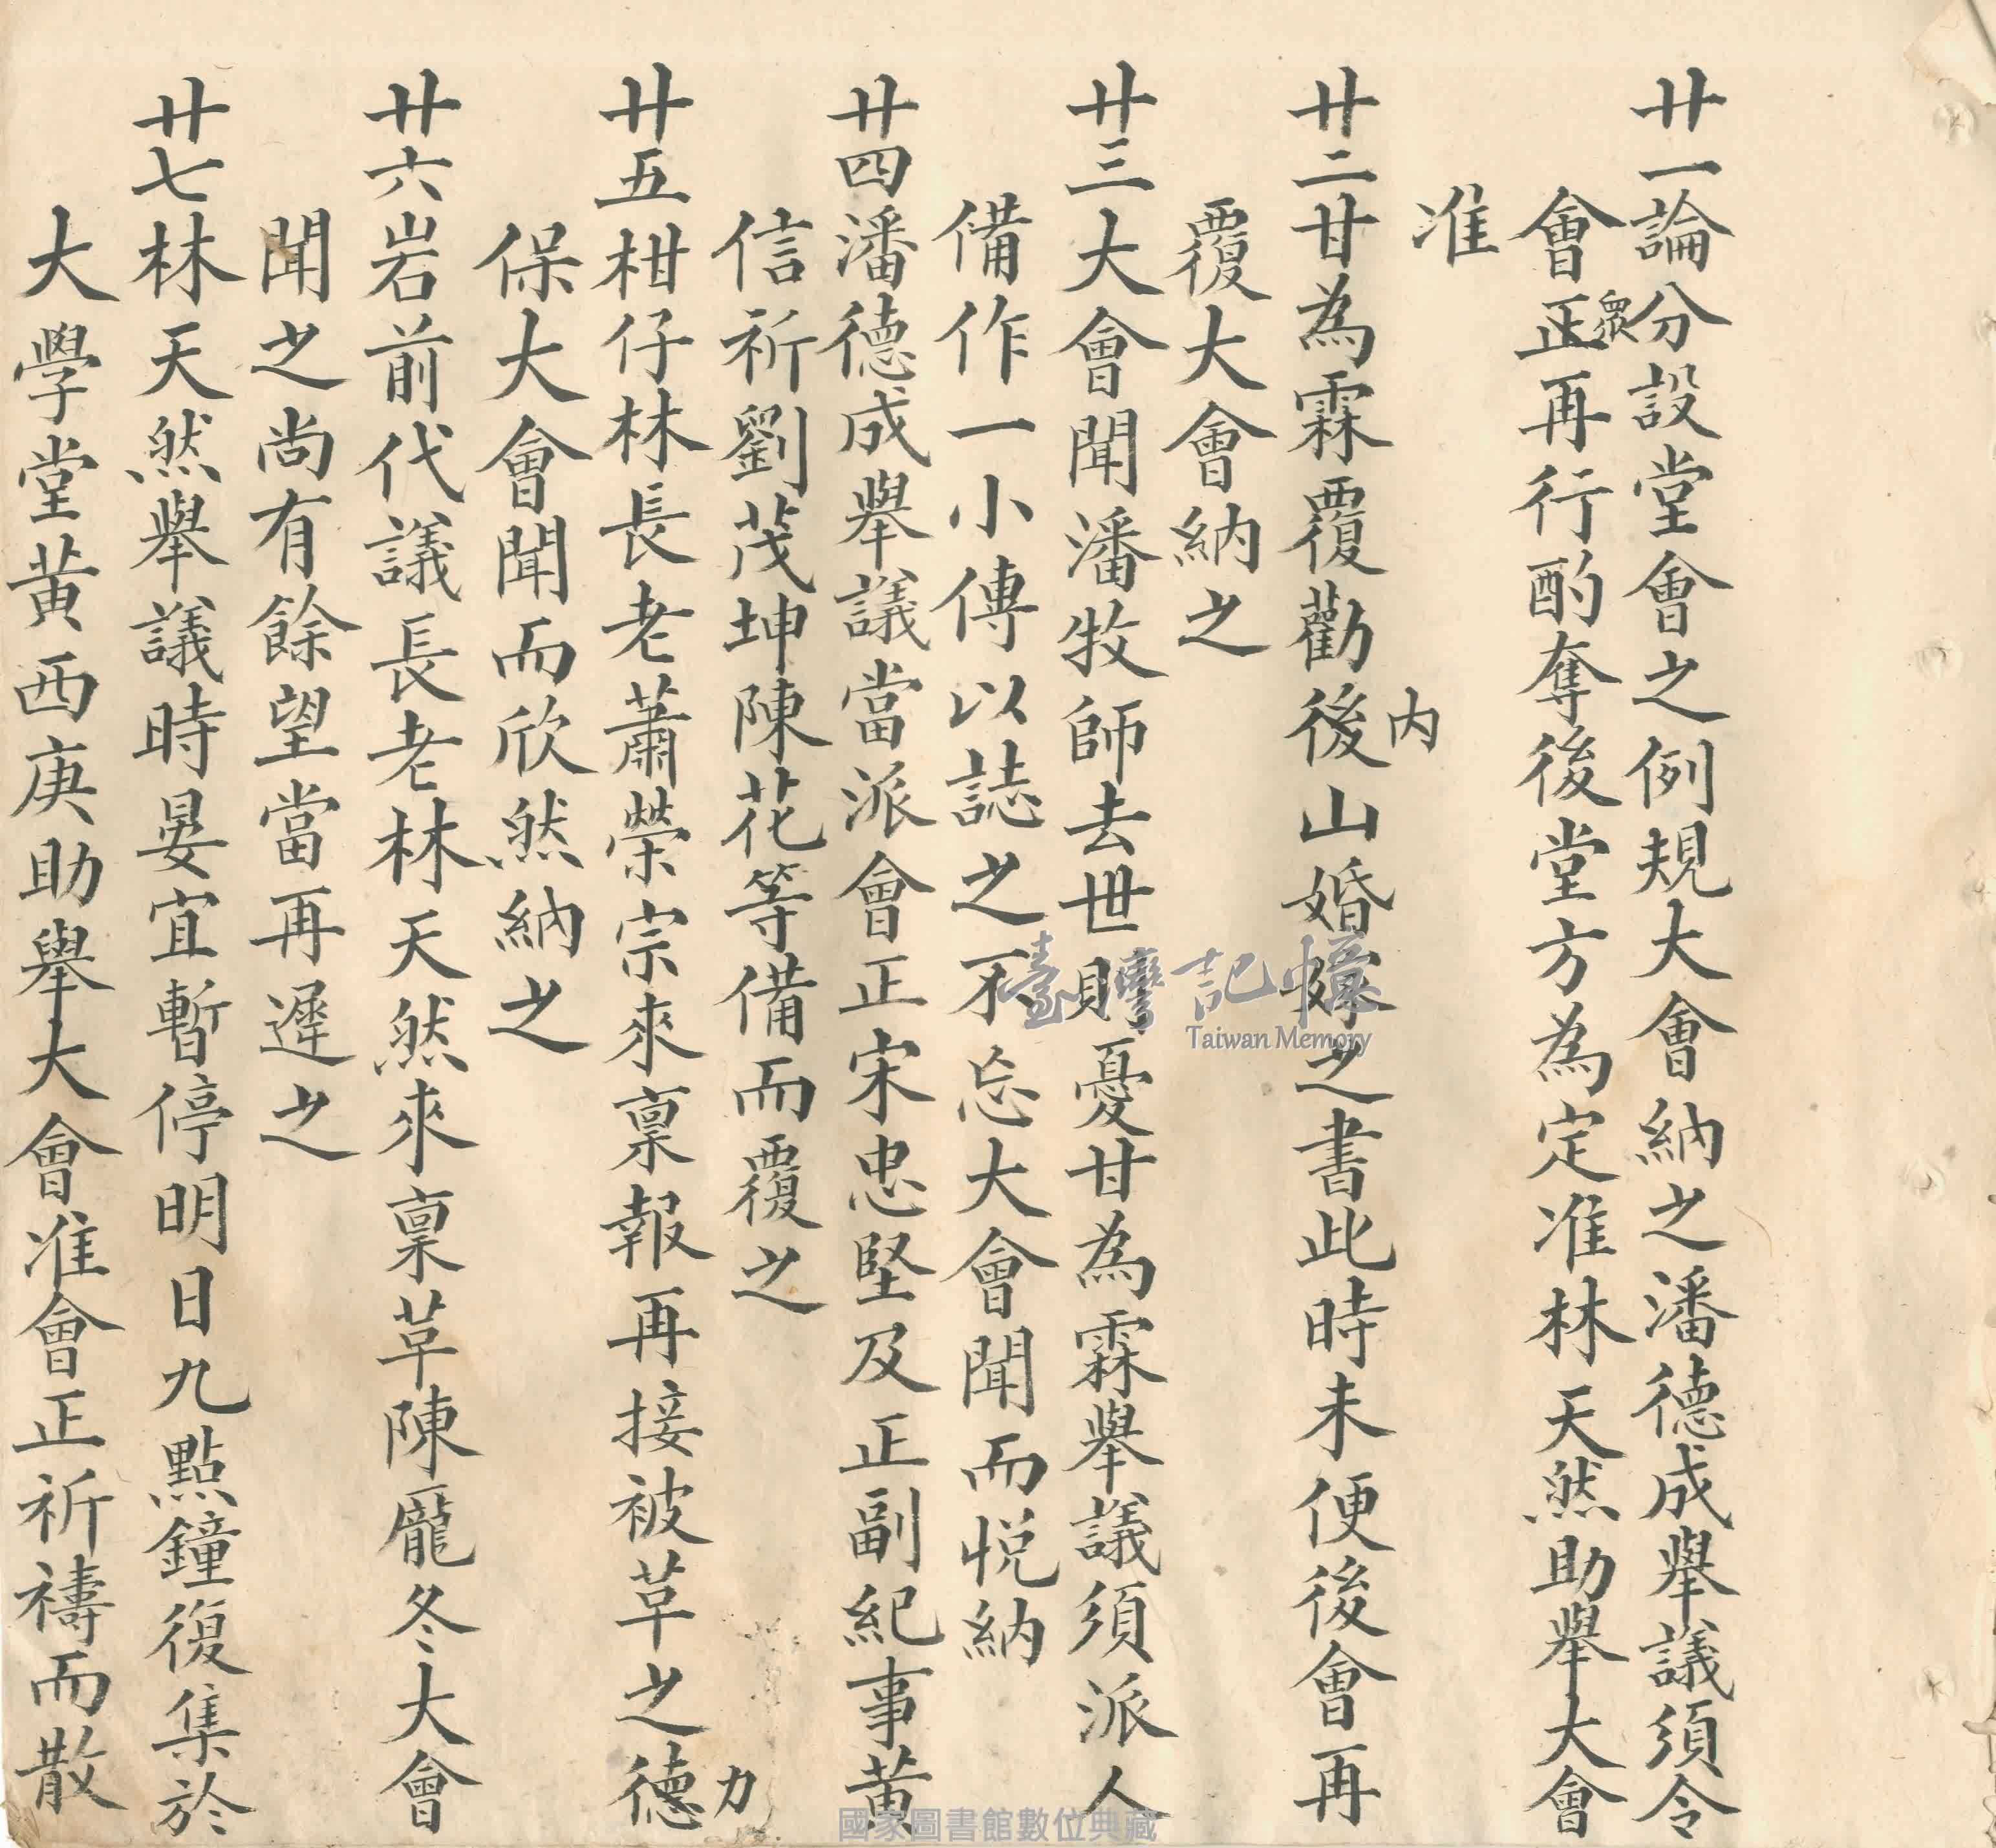 廿一論分設堂會之例規大會納之潘德成舉議須令
眾
會正再行酌奪後堂方為定准林天然助舉大會
准
內
廿二甘為霖覆勸後山婚嫁之書此時未便後會再
覆大會納之
廿三大會聞潘牧師去世則憂甘為霖舉議須派人
備作一小傳以誌之不忘大會聞而悅納
廿四潘德成舉議當派會正宋忠堅及正副紀事黃
信祈劉茂坤陳花等備而覆之
力
廿五柑仔林長老蕭榮宗來稟報再接被革之德
保大會聞而欣然納之
廿六岩前代議長老林天然來稟革陳龐冬大會
聞之尚有餘望當再遲之
廿七林天然舉議時晏宜暫停明日九點鐘復集於
大學堂黃西庚助舉大會准會正祈禱而散
臺灣記憶
Taiwan Memory
國家圖書館數位典藏